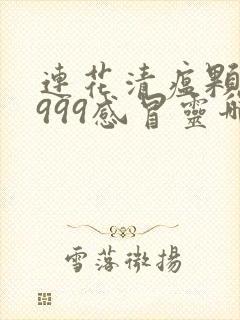 連花清瘟顆
999感冒靈
雪落微揚